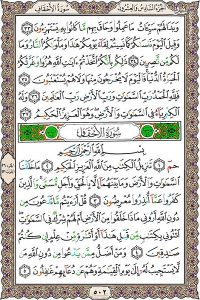 سُورَةُ الأَحْقَافِ الجُزْءُ السَّادِسُ وَالعِشْرُونَ
وَبَدَا لَهُمْ سَيِّـَٔاتُ مَا عَمِلُوا۟ وَحَاقَ بِهِم مَّا كَانُوا۟ بِهِۦ يَسْتَهْزِءُونَ ٣٣
وَقِيلَ ٱلْيَوْمَ نَنسَىٰكُمْ كَمَا نَسِيتُمْ لِقَآءَ يَوْمِكُمْ هَـٰذَا وَمَأْوَىٰكُمُ ٱلنَّارُ وَمَا
لَكُم مِّن نَّـٰصِرِينَ ٣٤ ذَٰلِكُم بِأَنَّكُمُ ٱتَّخَذْتُمْ ءَايَـٰتِ ٱللَّهِ هُزُوًا وَغَرَّتْكُمُ
ٱلْحَيَوٰةُ ٱلدُّنْيَا فَٱلْيَوْمَ لَا يُخْرَجُونَ مِنْهَا وَلَا هُمْ يُسْتَعْتَبُونَ ٣٥
فَلِلَّهِ ٱلْحَمْدُ رَبِّ ٱلسَّمَـٰوَٰتِ وَرَبِّ ٱلْأَرْضِ رَبِّ ٱلْعَـٰلَمِينَ ٣٦ وَلَهُ
ٱلْكِبْرِيَآءُ فِى ٱلسَّمَـٰوَٰتِ وَٱلْأَرْضِ وَهُوَ ٱلْعَزِيزُ ٱلْحَكِيمُ ٣٧
سُورَةُ الأَحْقَافِ
بِسْمِ ٱللَّهِ ٱلرَّحْمَـٰنِ ٱلرَّحِيمِ
حمٓ ١ تَنزِيلُ ٱلْكِتَـٰبِ مِنَ ٱللَّهِ ٱلْعَزِيزِ ٱلْحَكِيمِ ٢ مَا خَلَقْنَا
ٱلسَّمَـٰوَٰتِ وَٱلْأَرْضَ وَمَا بَيْنَهُمَآ إِلَّا بِٱلْحَقِّ وَأَجَلٍ مُّسَمًّى وَٱلَّذِينَ
كَفَرُوا۟ عَمَّآ أُنذِرُوا۟ مُعْرِضُونَ ٣ قُلْ أَرَءَيْتُم مَّا تَدْعُونَ مِن
دُونِ ٱللَّهِ أَرُونِى مَاذَا خَلَقُوا۟ مِنَ ٱلْأَرْضِ أَمْ لَهُمْ شِرْكٌ فِى ٱلسَّمَـٰوَٰتِ
ٱئْتُونِى بِكِتَـٰبٍ مِّن قَبْلِ هَـٰذَآ أَوْ أَثَـٰرَةٍ مِّنْ عِلْمٍ إِن كُنتُمْ
صَـٰدِقِينَ ٤ وَمَنْ أَضَلُّ مِمَّن يَدْعُوا۟ مِن دُونِ ٱللَّهِ مَن
لَّا يَسْتَجِيبُ لَهُۥٓ إِلَىٰ يَوْمِ ٱلْقِيَـٰمَةِ وَهُمْ عَن دُعَآئِهِمْ غَـٰفِلُونَ ٥
٥٠٢